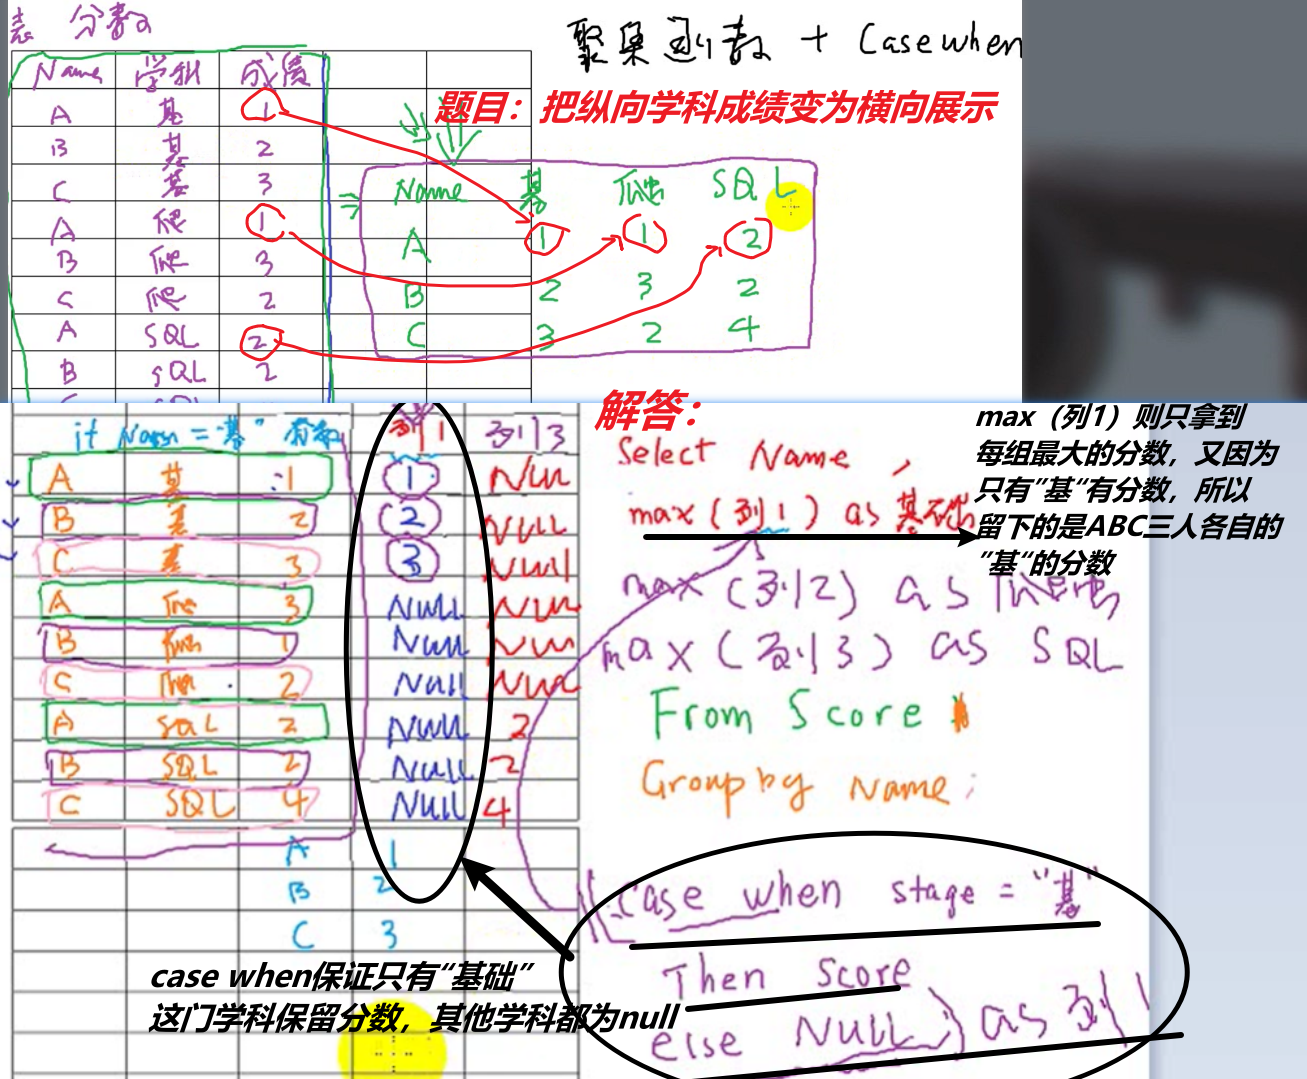 表 分数
聚集函数 + Case when
Name 学科 成绩
题目：把纵向学科成绩变为横向展示
A 基 1
B 基 2
C 基 3
A 爬 1
B 爬 3
C 爬 2
A SQL 2
B SQL 2
Name 基 爬虫 SQL
A 1 1 2
B 2 3 2
C 3 2 4
解答：
if Name = "基" 列1 列3
A 基 1 1 Null
B 基 2 2 NULL
C 基 3 3 Null
A 爬 3 NULL Null
B 1 Null Null
C 2 Null Null
A SQL 2 NULL 2
B SQL 2 Null 2
C SQL 4 Null 4
A 1
B 2
C 3
Select Name ,
max (列1) as 基础
max (列2) as 爬虫
max (列3) as SQL
From Score
Group by Name ;
max（列1）则只拿到
每组最大的分数，又因为
只有"基“有分数，所以
留下的是ABC三人各自的
"基“的分数
(case when stage = "基"
Then Score
else NULL) as 列1
case when保证只有“基础”
这门学科保留分数，其他学科都为null